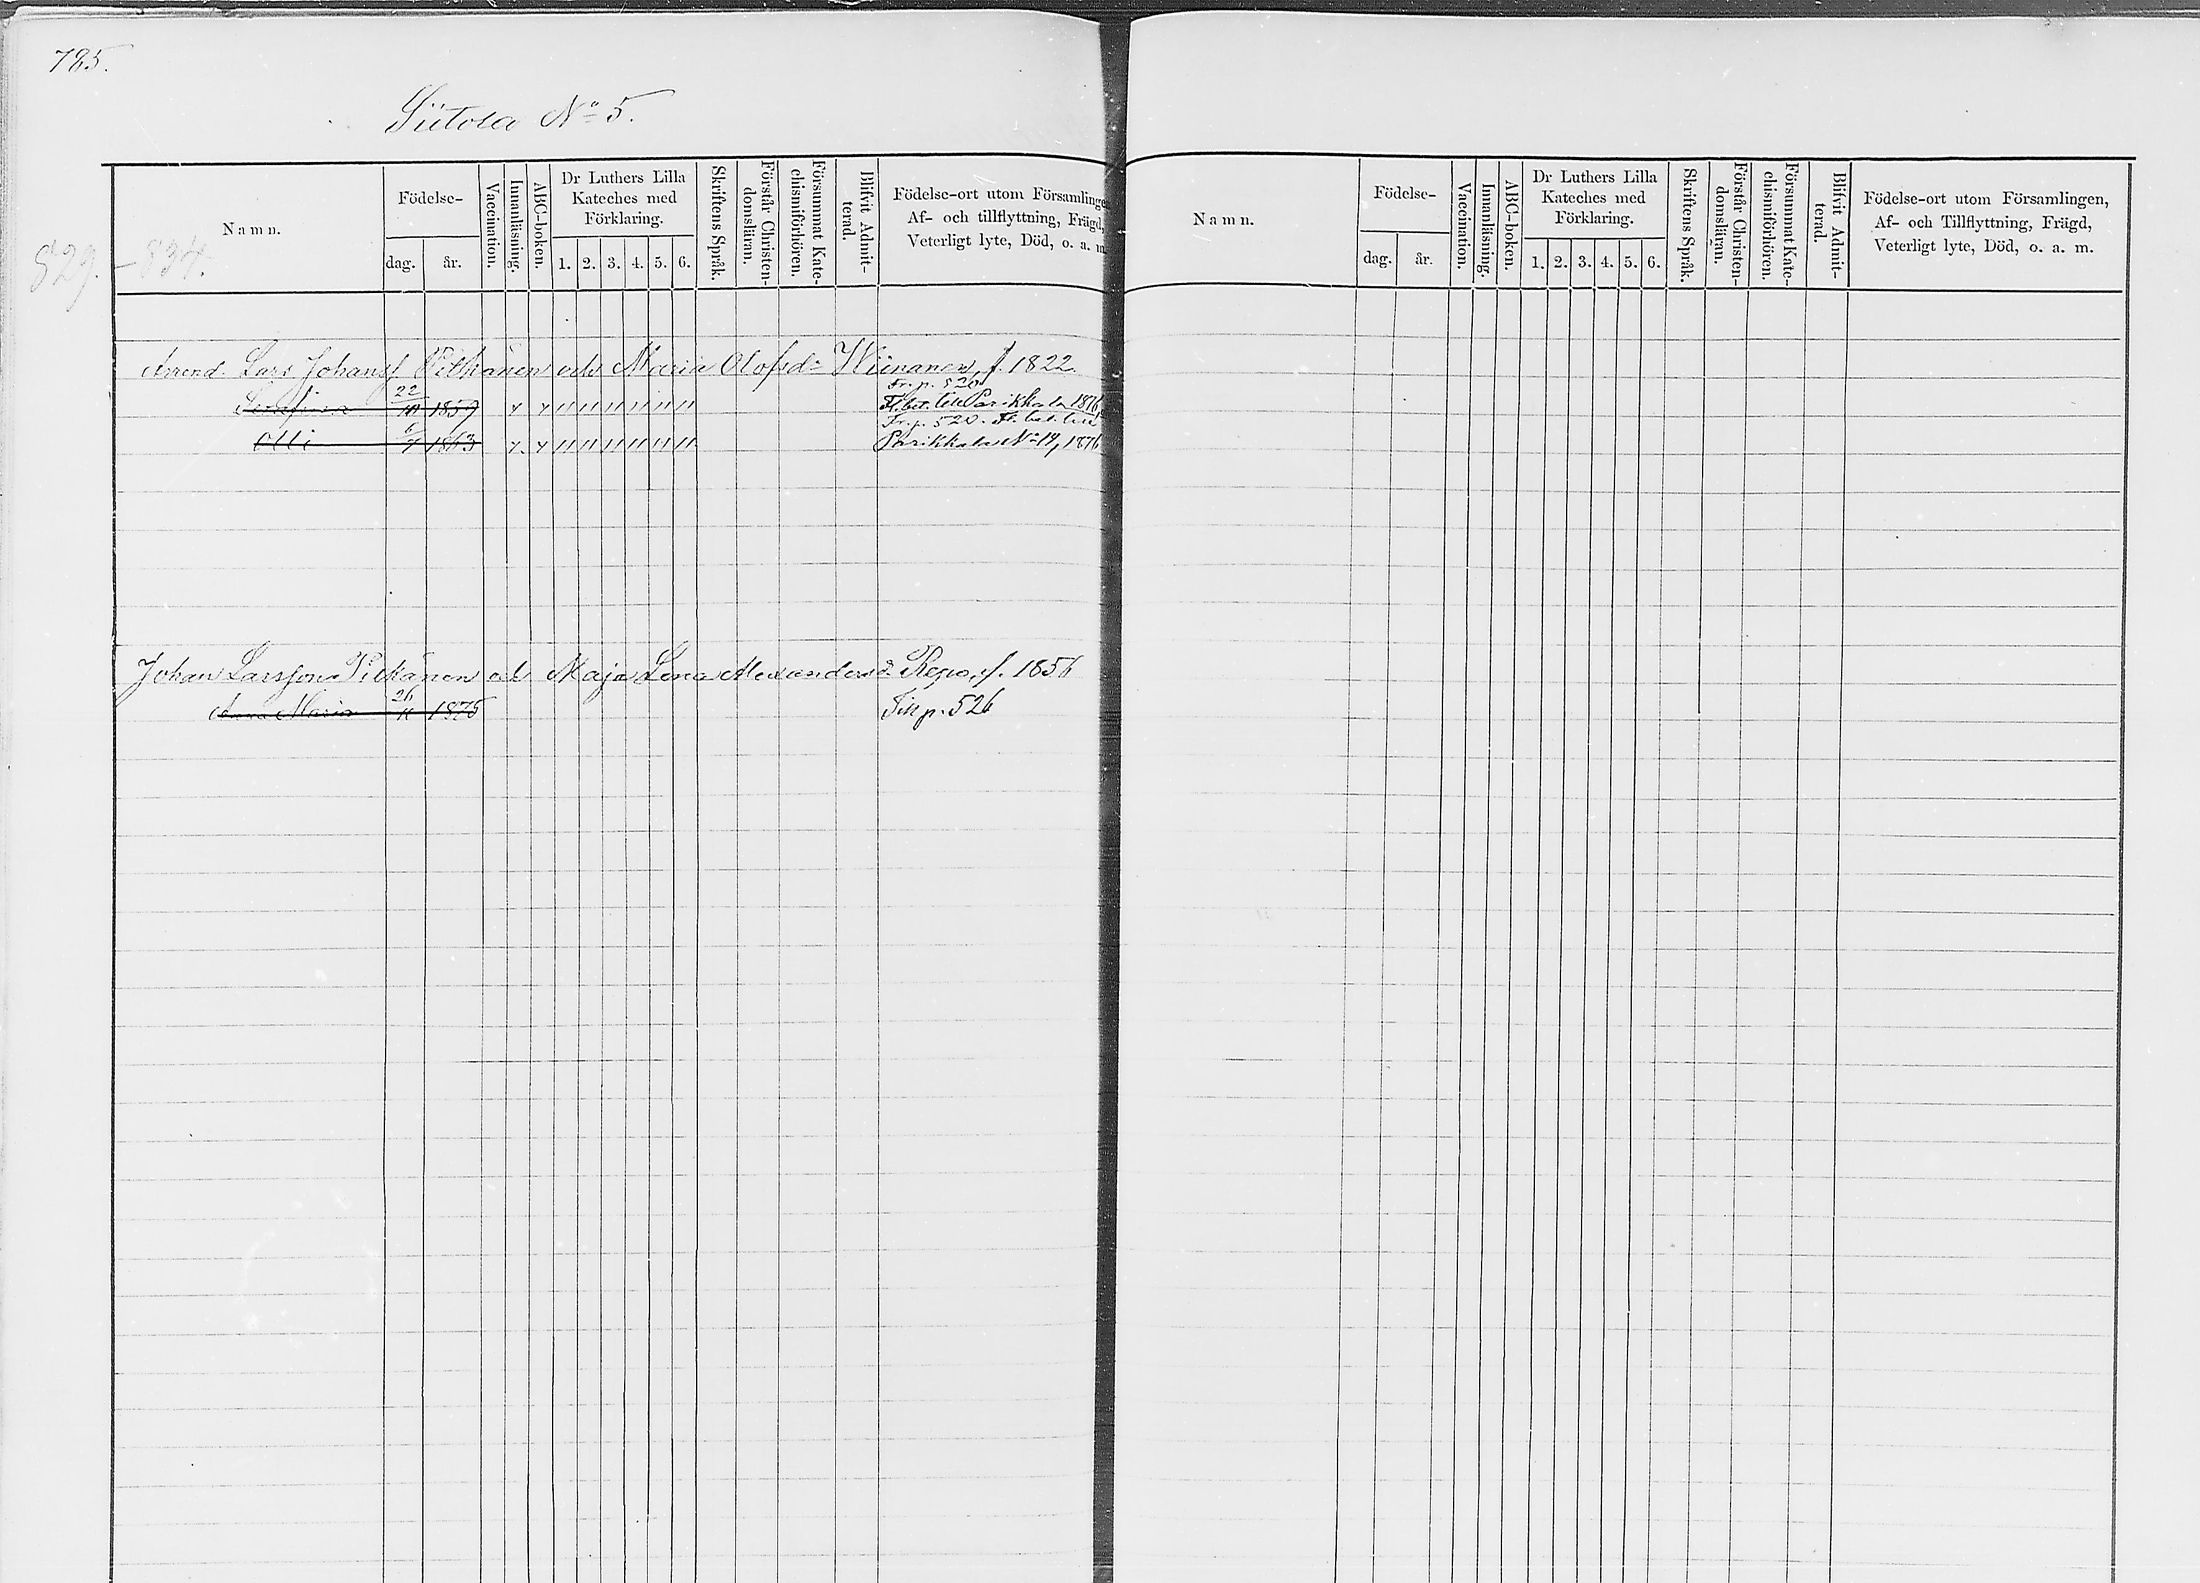 785.
Siitola No 5.
829.–834.
Namn.
Födelse-
dag.
år.
Vaccination.
Innanläsning.
ABC-boken.
Dr Luthers Lilla
Kateches med
Förklaring.
1. 2. 3. 4. 5. 6.
Skriftens Språk.
Förstår Christen-
domsläran.
Försummat Kate-
chismiförhören.
Blifvit Admit-
terad.
Födelse-ort utom Församlinge
Af- och tillflyttning, Frägd,
Veterligt lyte, Död, o. a. m
Arrend. Lars Johansf. Pitkänen och Maria Olofsdr Wiinanen, f. 1822.
Fr. p. 520
Serafina 22 1859 Fl. bet. till Parikkala 1876,
Fr. p. 520. Fl. bet. till
Olli 1863 Parikkala No 19, 1876
Johan Larsson Pitkänen och Maja Lena Alexandersdr Repo, f. 1856
Anna Maria 26 1875 Till p. 526
Namn.
Födelse-
dag.
år.
Vaccination.
Innanläsning.
ABC-boken.
Dr Luthers Lilla
Kateches med
Förklaring.
1. 2. 3. 4. 5. 6.
Skriftens Språk.
Förstår Christen-
domsläran.
Försummat Kate-
chismiförhören.
Blifvit Admit-
terad.
Födelse-ort utom Församlingen,
Af- och Tillflyttning, Frägd,
Veterligt lyte, Död, o. a. m.